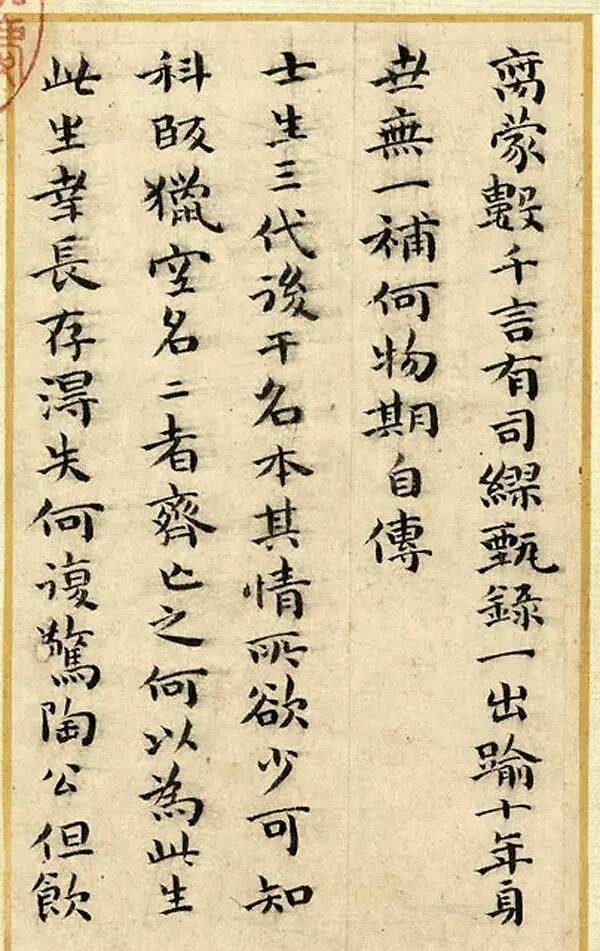 蒙數千言有司繆甄錄一出踰十年身
世無一補何物期自傳
士生三代後干名本其情所欲少可知
科段獵空名二者齊亡之何以為此生
此坐幸長存得失何復驚陶公但飲